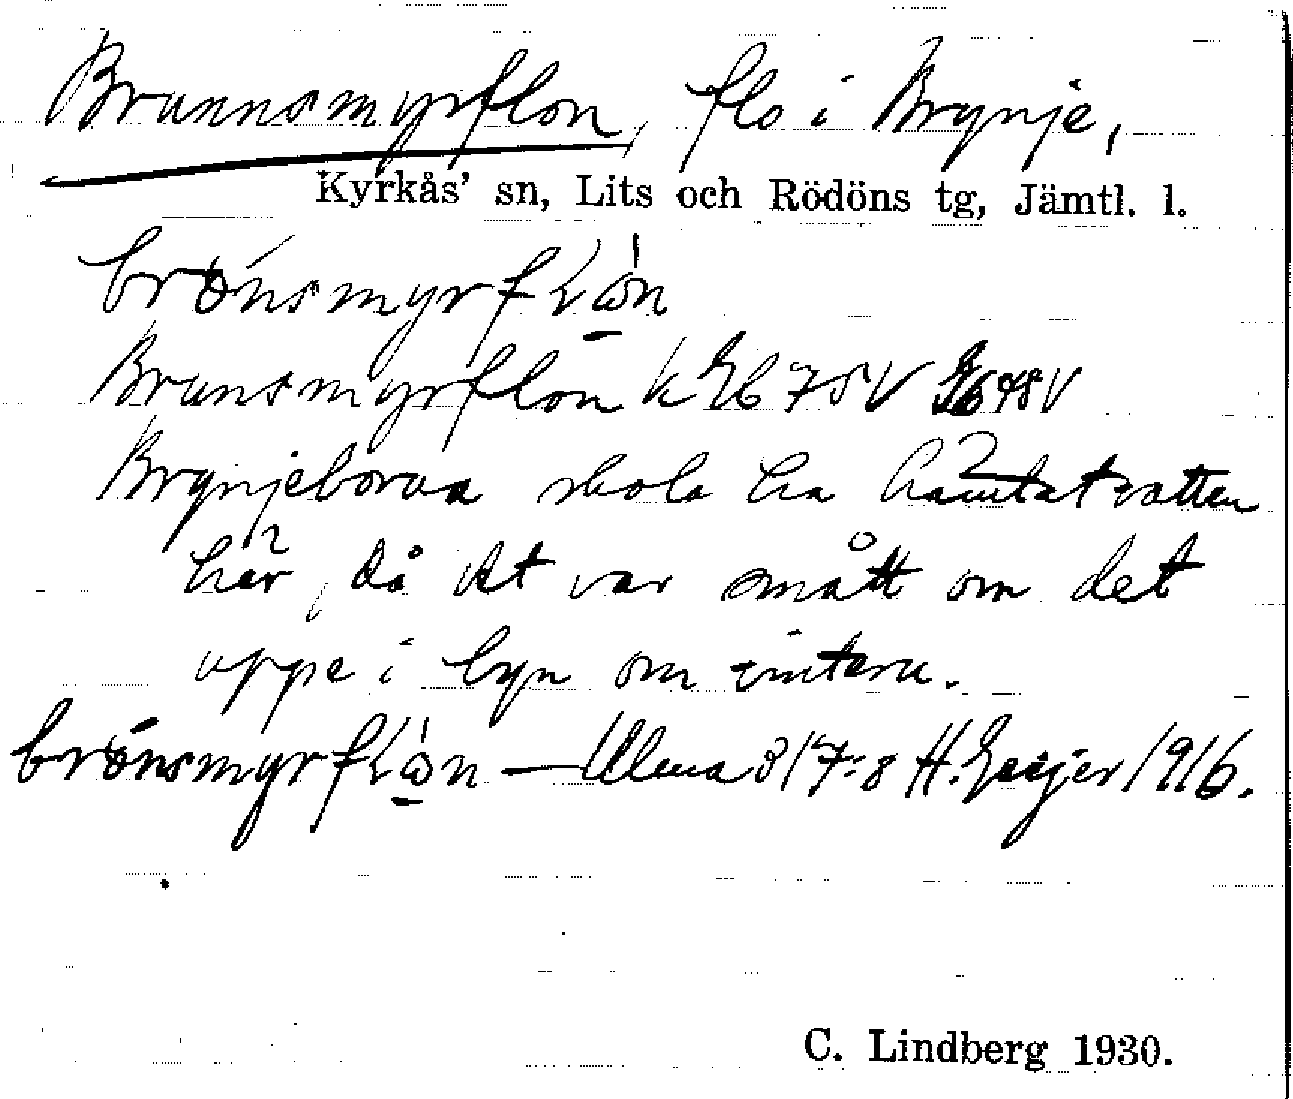 Brunnsmyrflon, flo i Brynje,
Kyrkås' sn, Lits och Rödöns tg, Jämtl. l.
brønsmyrfłɷ̀n
Brunsmyrflon k 75V 48V
Brynjeborna skola ha hämtat vatten
här, då det var smått om det
uppe i byn om vintern.
brønsmyrfłɷ̀n — Ulma 317:8 H. Geijer 1916.
C. Lindberg 1930.